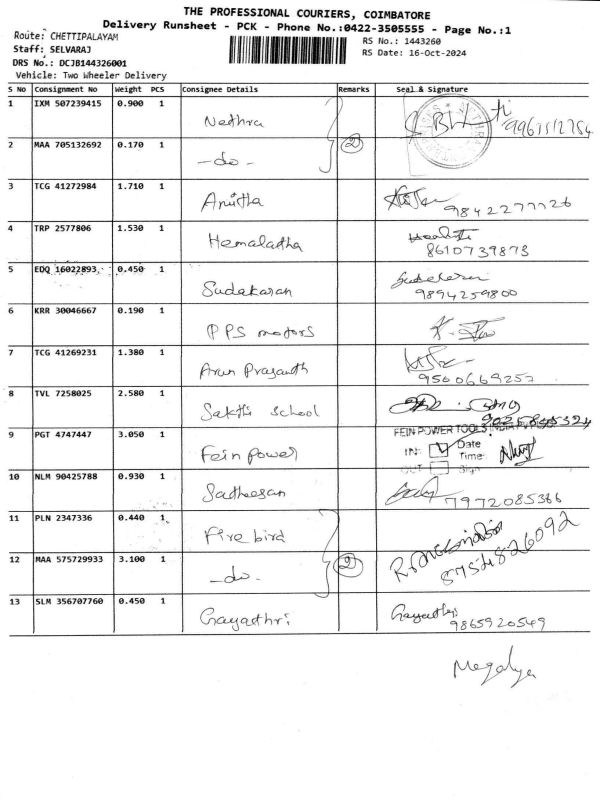 THE PROFESSIONAL COURIERS, COIMBATORE
Delivery Runsheet - PCK - Phone No.:0422-3505555 - Page No.:1
Route: CHETTIPALAYAM
Staff: SELVARAJ
DRS No.: DCJB144326001
Vehicle: Two Wheeler Delivery
RS No.: 1443260
RS Date: 16-Oct-2024
S No Consignment No Weight PCS Consignee Details Remarks Seal & Signature
1 IXM 507239415 0.900 1 Nethra
2 MAA 705132692 0.170 1 -do- 2
3 TCG 41272984 1.710 1 Anitha 9842277726
4 TRP 2577806 1.530 1 Hemaladha 8610739873
5 EDQ 16022893 0.450 1 Sudakaran 9894259800
6 KRR 30046667 0.190 1 PPS motors
7 TCG 41269231 1.380 1 Arun Prasanth 9500669257
8 TVL 7258025 2.580 1 Sakthi School
9 PGT 4747447 3.050 1 Fein power FEIN POWER TOOLS INDIA IN: Date Time: OUT Sign
10 NLM 90425788 0.930 1 Satheesan 7972085366
11 PLN 2347336 0.440 1 Fire bird 8754826092
12 MAA 575729933 3.100 1 -do- 2
13 SLM 356707760 0.450 1 Gayathri Gayathri 9865920549